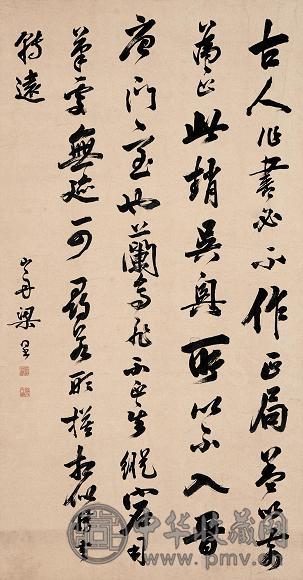 古人作書必不作正局蓋以奇
為正此趙吳興所以不入晉
唐門室也蘭亭非不正其縱宕用
筆處無迹可尋若形模相似轉去
轉遠
梁
中华收藏网